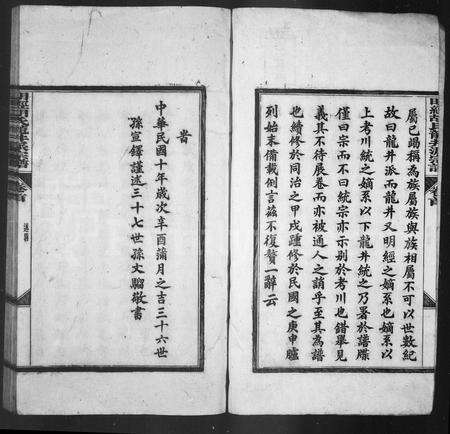 屬已竭稱為族屬族與族相屬不可以世數紀
故曰龍井派而龍井又明經之嫡系也嫡系以
上考川統之嫡系以下龍井統之乃署於譜牒
僅曰宗而不曰統宗亦示別於考川也錯舉見
義其不待展卷而亦被通人之誚乎至其為譜
也續修於同治之甲戌踵修於民國之庚申臚
列始末備載例言茲不復贅一辭云
峕
中華民國十年歲次辛酉蒲月之吉三十六世
孫宣鐸謹述三十七世孫文騮敬書